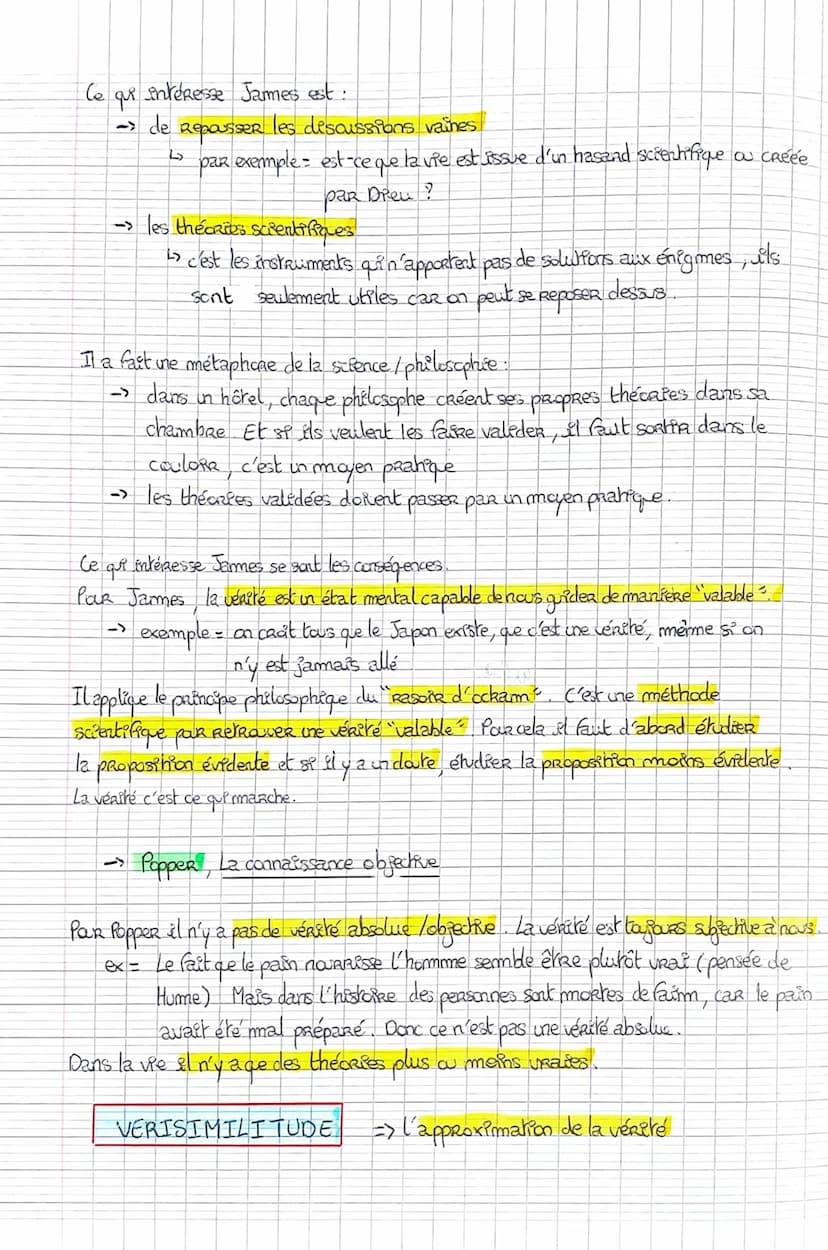 Ce qui intéresse James est :
-> de repousser les discussions vaines
↳ par exemple = est-ce que la vie est issue d'un hasard scientifique ou créée
par Dieu ?
-> les théories scientifiques
↳ c'est les instruments qui n'apportent pas de solutions aux énigmes, ils
sont seulement utiles car on peut se reposer dessus.
Il a fait une métaphore de la science / philosophie :
-> dans un hôtel, chaque philosophe créent ses propres théories dans sa
chambre. Et si ils veulent les faire valider, il faut sortir dans le
couloir, c'est un moyen pratique
-> les théories validées doivent passer par un moyen pratique.
Ce qui intéresse James se sont les conséqences.
Pour James, la vérité est un état mental capable de nous guider de manière "valable".
-> exemple = on croit tous que le Japon existe, que c'est une vérité, même si on
n'y est jamais allé
Il applique le principe philosophique du "rasoir d'ockam". C'est une méthode
scientifique pour retrouver une vérité "valable". Pour cela il faut d'abord étudier
la proposition évidente et si il y a un doute, étudier la proposition moins évidente.
La vérité c'est ce qui marche.
-> Popper, La connaissance objective
Pour Popper il n'y a pas de vérité absolue / objective. La vérité est toujours subjective à nous.
ex = Le fait que le pain nourrisse l'homme semble être plutôt vrai (pensée de
Hume) Mais dans l'histoire des personnes sont mortes de faim, car le pain
avait été mal préparé. Donc ce n'est pas une vérité absolue.
Dans la vie il n'y a que des théories plus ou moins vraies.
VERISIMILITUDE => l'approximation de la vérité